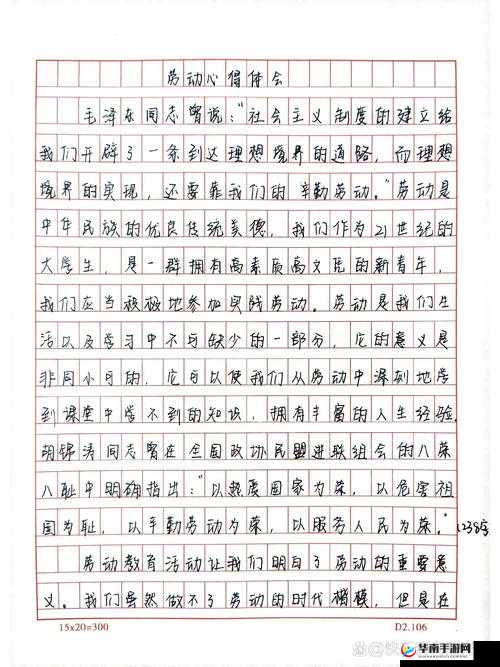 劳动心得体会
毛泽东同志曾说："社会主义制度的建立给
我们开辟了一条到达理想境界的道路，而理想
境界的实现，还要靠我们的辛勤劳动。"劳动是
中华民族的优良传统美德，我们作为21世纪的
大学生，是一群拥有高素质高文凭的新青年，
我们应当积极地参加实践劳动。劳动是我们生
活以及学习中不可缺少的一部分，它的意义是
非同小可的，它可以使我们从劳动中深刻地学
到课堂中学不到的知识，拥有丰富的人生经验。
胡锦涛同志曾在全国政协民盟进联组会的八荣
八耻中明确指出："以热爱国家为荣，以危害祖
国为耻，以辛勤劳动为荣，以服务人民为荣。"
劳动教育活动让我们明白了劳动的重要意
义。我们虽然做不了劳动的时代楷模，但是在
15x20=300 D2.106
华南手游网